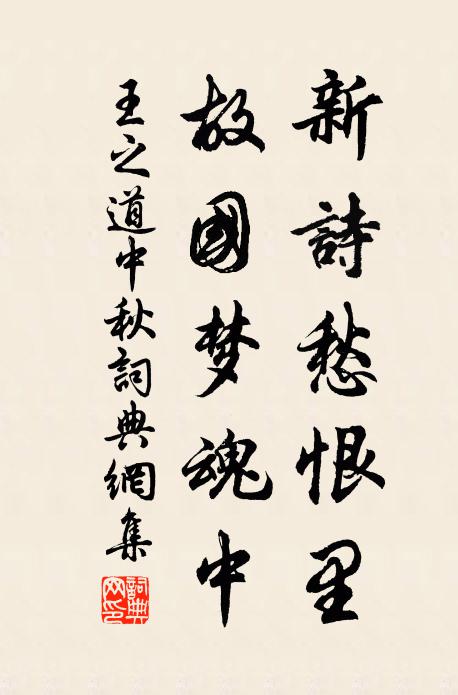 新詩愁恨里
故國梦魂中
王之道中秋詞典網集
詞典网印